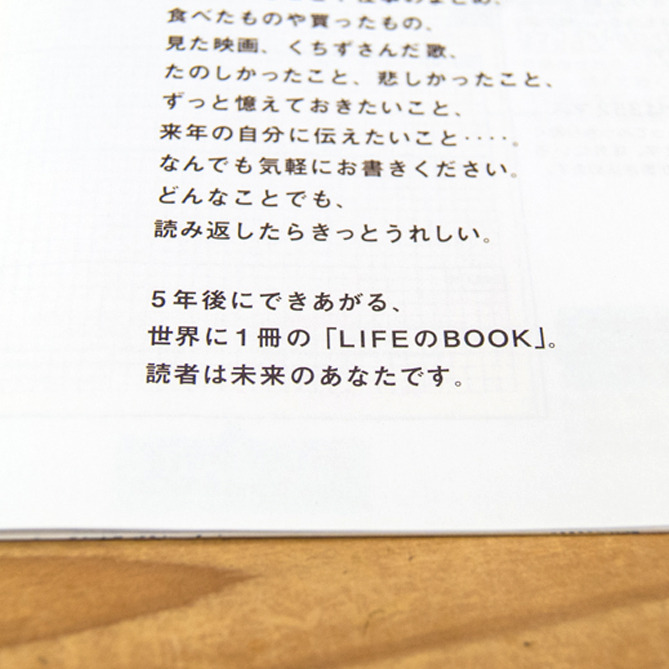 食べたものや買ったもの、
見た映画、くちずさんだ歌、
たのしかったこと、悲しかったこと、
ずっと憶えておきたいこと、
来年の自分に伝えたいこと‥‥‥。
なんでも気軽にお書きください。
どんなことでも、
読み返したらきっとうれしい。
５年後にできあがる、
世界に１冊の「LIFEのBOOK」。
読者は未来のあなたです。